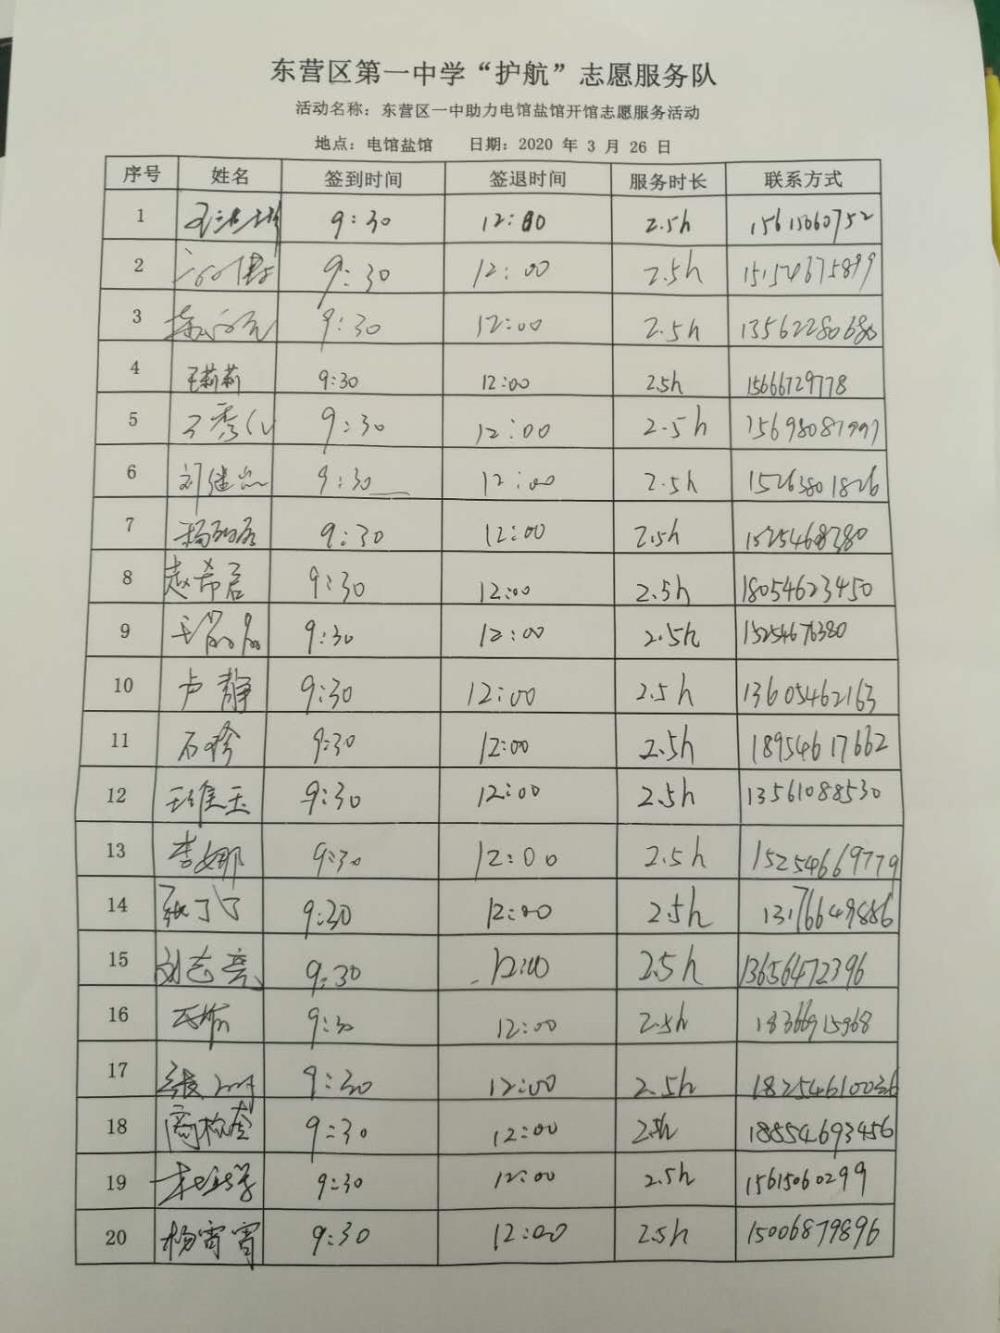 东营区第一中学“护航”志愿服务队
活动名称：东营区一中助力电馆盐馆开馆志愿服务活动
地点：电馆盐馆 日期：2020 年 3 月 26 日
序号 姓名 签到时间 签退时间 服务时长 联系方式
1 9:30 12:00 2.5h 15615060752
2 9:30 12:00 2.5h
3 9:30 12:00 2.5h 13562280680
4 王莉莉 9:30 12:00 2.5h 15666729778
5 9:30 12:00 2.5h
6 9:30 12:00 2.5h 15263801826
7 9:30 12:00 2.5h 1525468380
8 赵希君 9:30 12:00 2.5h 18054623450
9 9:30 12:00 2.5h 15254676380
10 卢静 9:30 12:00 2.5h 13605462163
11 石珍 9:30 12:00 2.5h 18954617662
12 9:30 12:00 2.5h 13561088530
13 李娜 9:30 12:00 2.5h 15254669779
14 张丁丁 9:30 12:00 2.5h 13176649886
15 刘志亮 9:30 12:00 2.5h 13656472396
16 9:30 12:00 2.5h 18366915968
17 9:30 12:00 2.5h 18254610036
18 9:30 12:00 2.5h 18854693456
19 9:30 12:00 2.5h 15615060299
20 杨霄霄 9:30 12:00 2.5h 15006879896